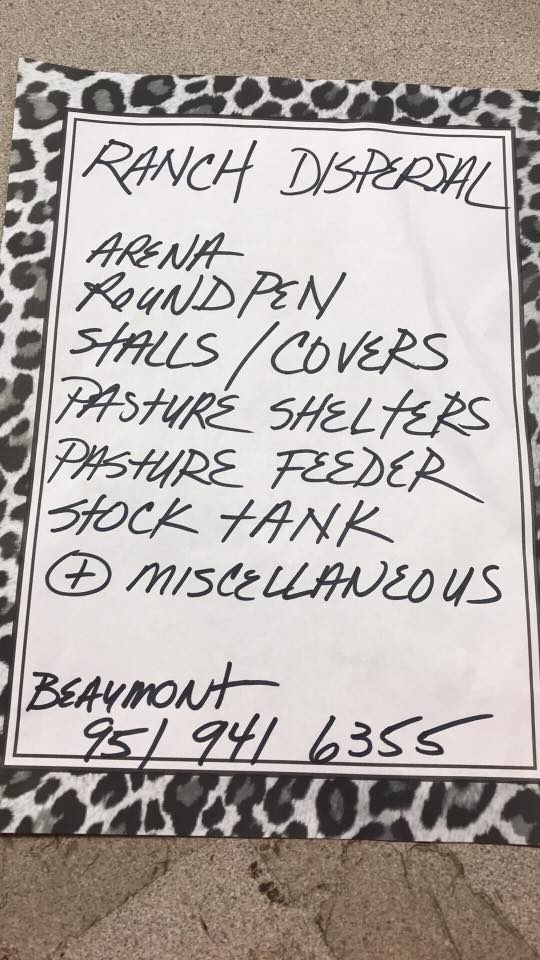 RANCH DISPERSAL
ARENA
ROUND PEN
STALLS / COVERS
PASTURE SHELTERS
PASTURE FEEDER
STOCK TANK
+ MISCELLANEOUS
BEAUMONT
951 941 6355